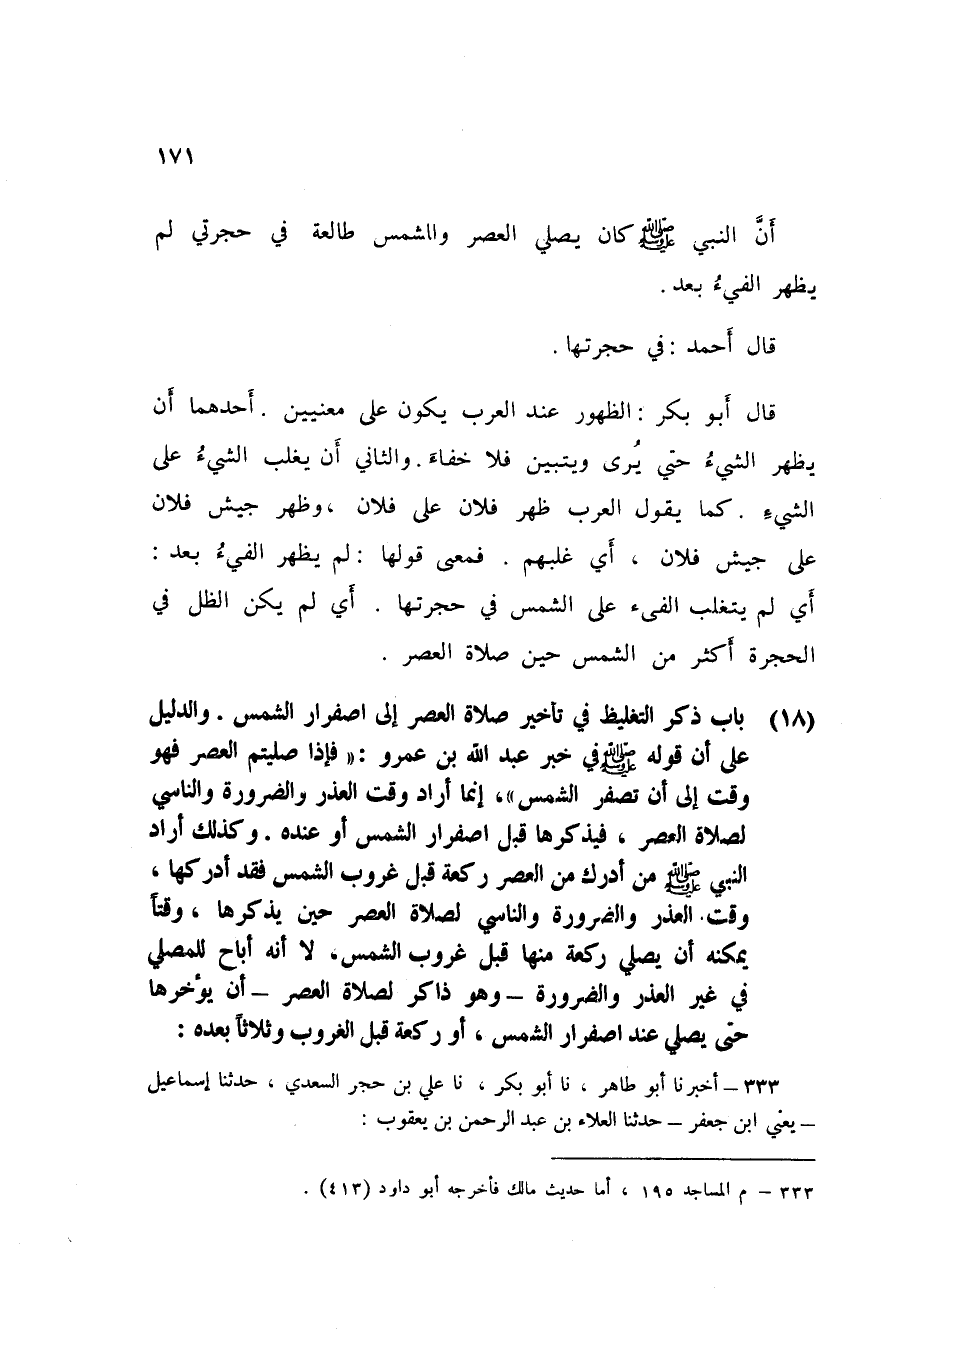 ١٧١
أَنَّ النبي ﷺ كان يصلي العصر والشمس طالعة في حجرتي لم
يظهر الفيءُ بعد .
قال أَحمد : في حجرتها .
قال أَبو بكر : الظهور عند العرب يكون على معنيين . أَحدهما أَن
يظهر الشيءُ حتى يُرى ويتبين فلا خفاءَ . والثاني أَن يغلب الشيءُ على
الشيءِ . كما يقول العرب ظهر فلان على فلان ، وظهر جيش فلان
على جيش فلان ، أَي غلبهم . فمعنى قولها : لم يظهر الفيءُ بعد :
أَي لم يتغلب الفىء على الشمس في حجرتها . أَي لم يكن الظل في
الحجرة أَكثر من الشمس حين صلاة العصر .
(١٨) باب ذكر التغليظ في تأخير صلاة العصر إلى اصفرار الشمس . والدليل
على أن قوله ﷺ في خبر عبد الله بن عمرو : « فإذا صليتم العصر فهو
وقت إلى أن تصفر الشمس » ، إنما أراد وقت العذر والضرورة والناسي
لصلاة العصر ، فيذكرها قبل اصفرار الشمس أو عنده . وكذلك أراد
النبي ﷺ من أدرك من العصر ركعة قبل غروب الشمس فقد أدركها ،
وقت العذر والضرورة والناسي لصلاة العصر حين يذكرها ، وقتاً
يمكنه أن يصلي ركعة منها قبل غروب الشمس ، لا أنه أباح للمصلي
في غير العذر والضرورة – وهو ذاكر لصلاة العصر – أن يؤخرها
حتى يصلي عند اصفرار الشمس ، أو ركعة قبل الغروب وثلاثاً بعده :
٣٣٣ – أخبرنا أبو طاهر ، نا أبو بكر ، نا علي بن حجر السعدي ، حدثنا إسماعيل
– يعني ابن جعفر – حدثنا العلاء بن عبد الرحمن بن يعقوب :
٣٣٣ – م المساجد ١٩٥ ، أما حديث مالك فأخرجه أبو داود (٤١٣) .